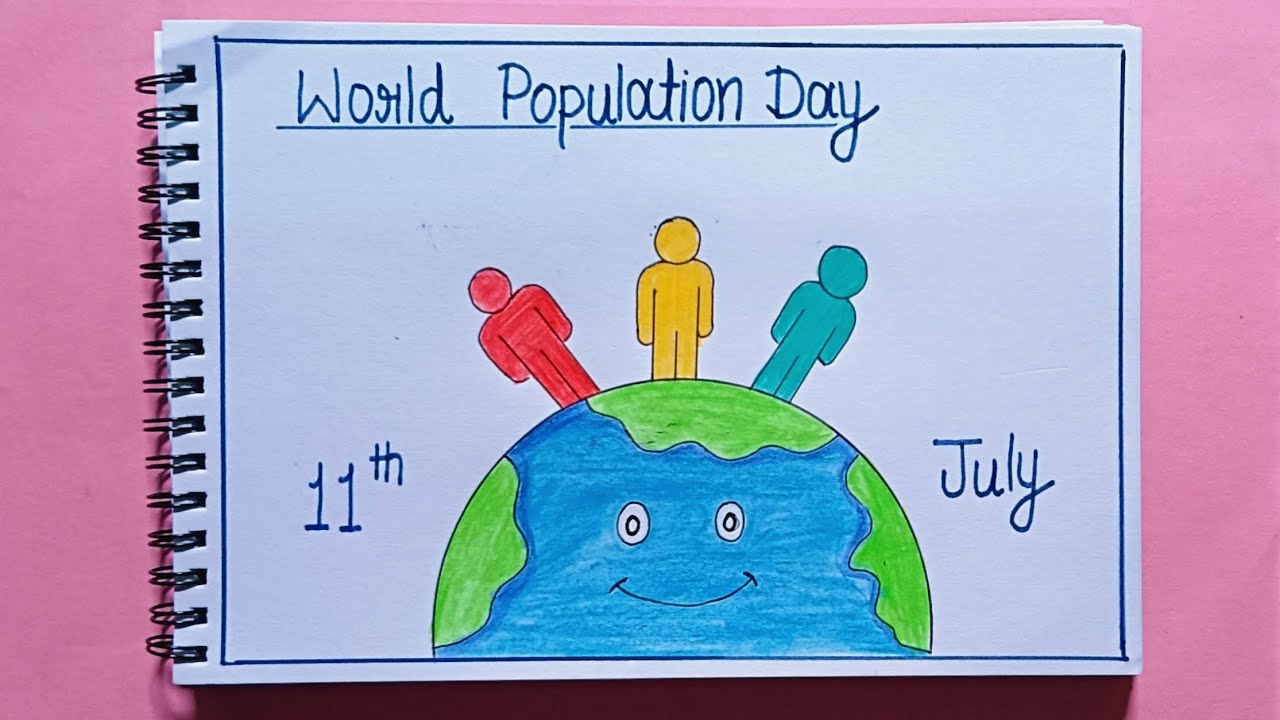 World Population Day
11th
July